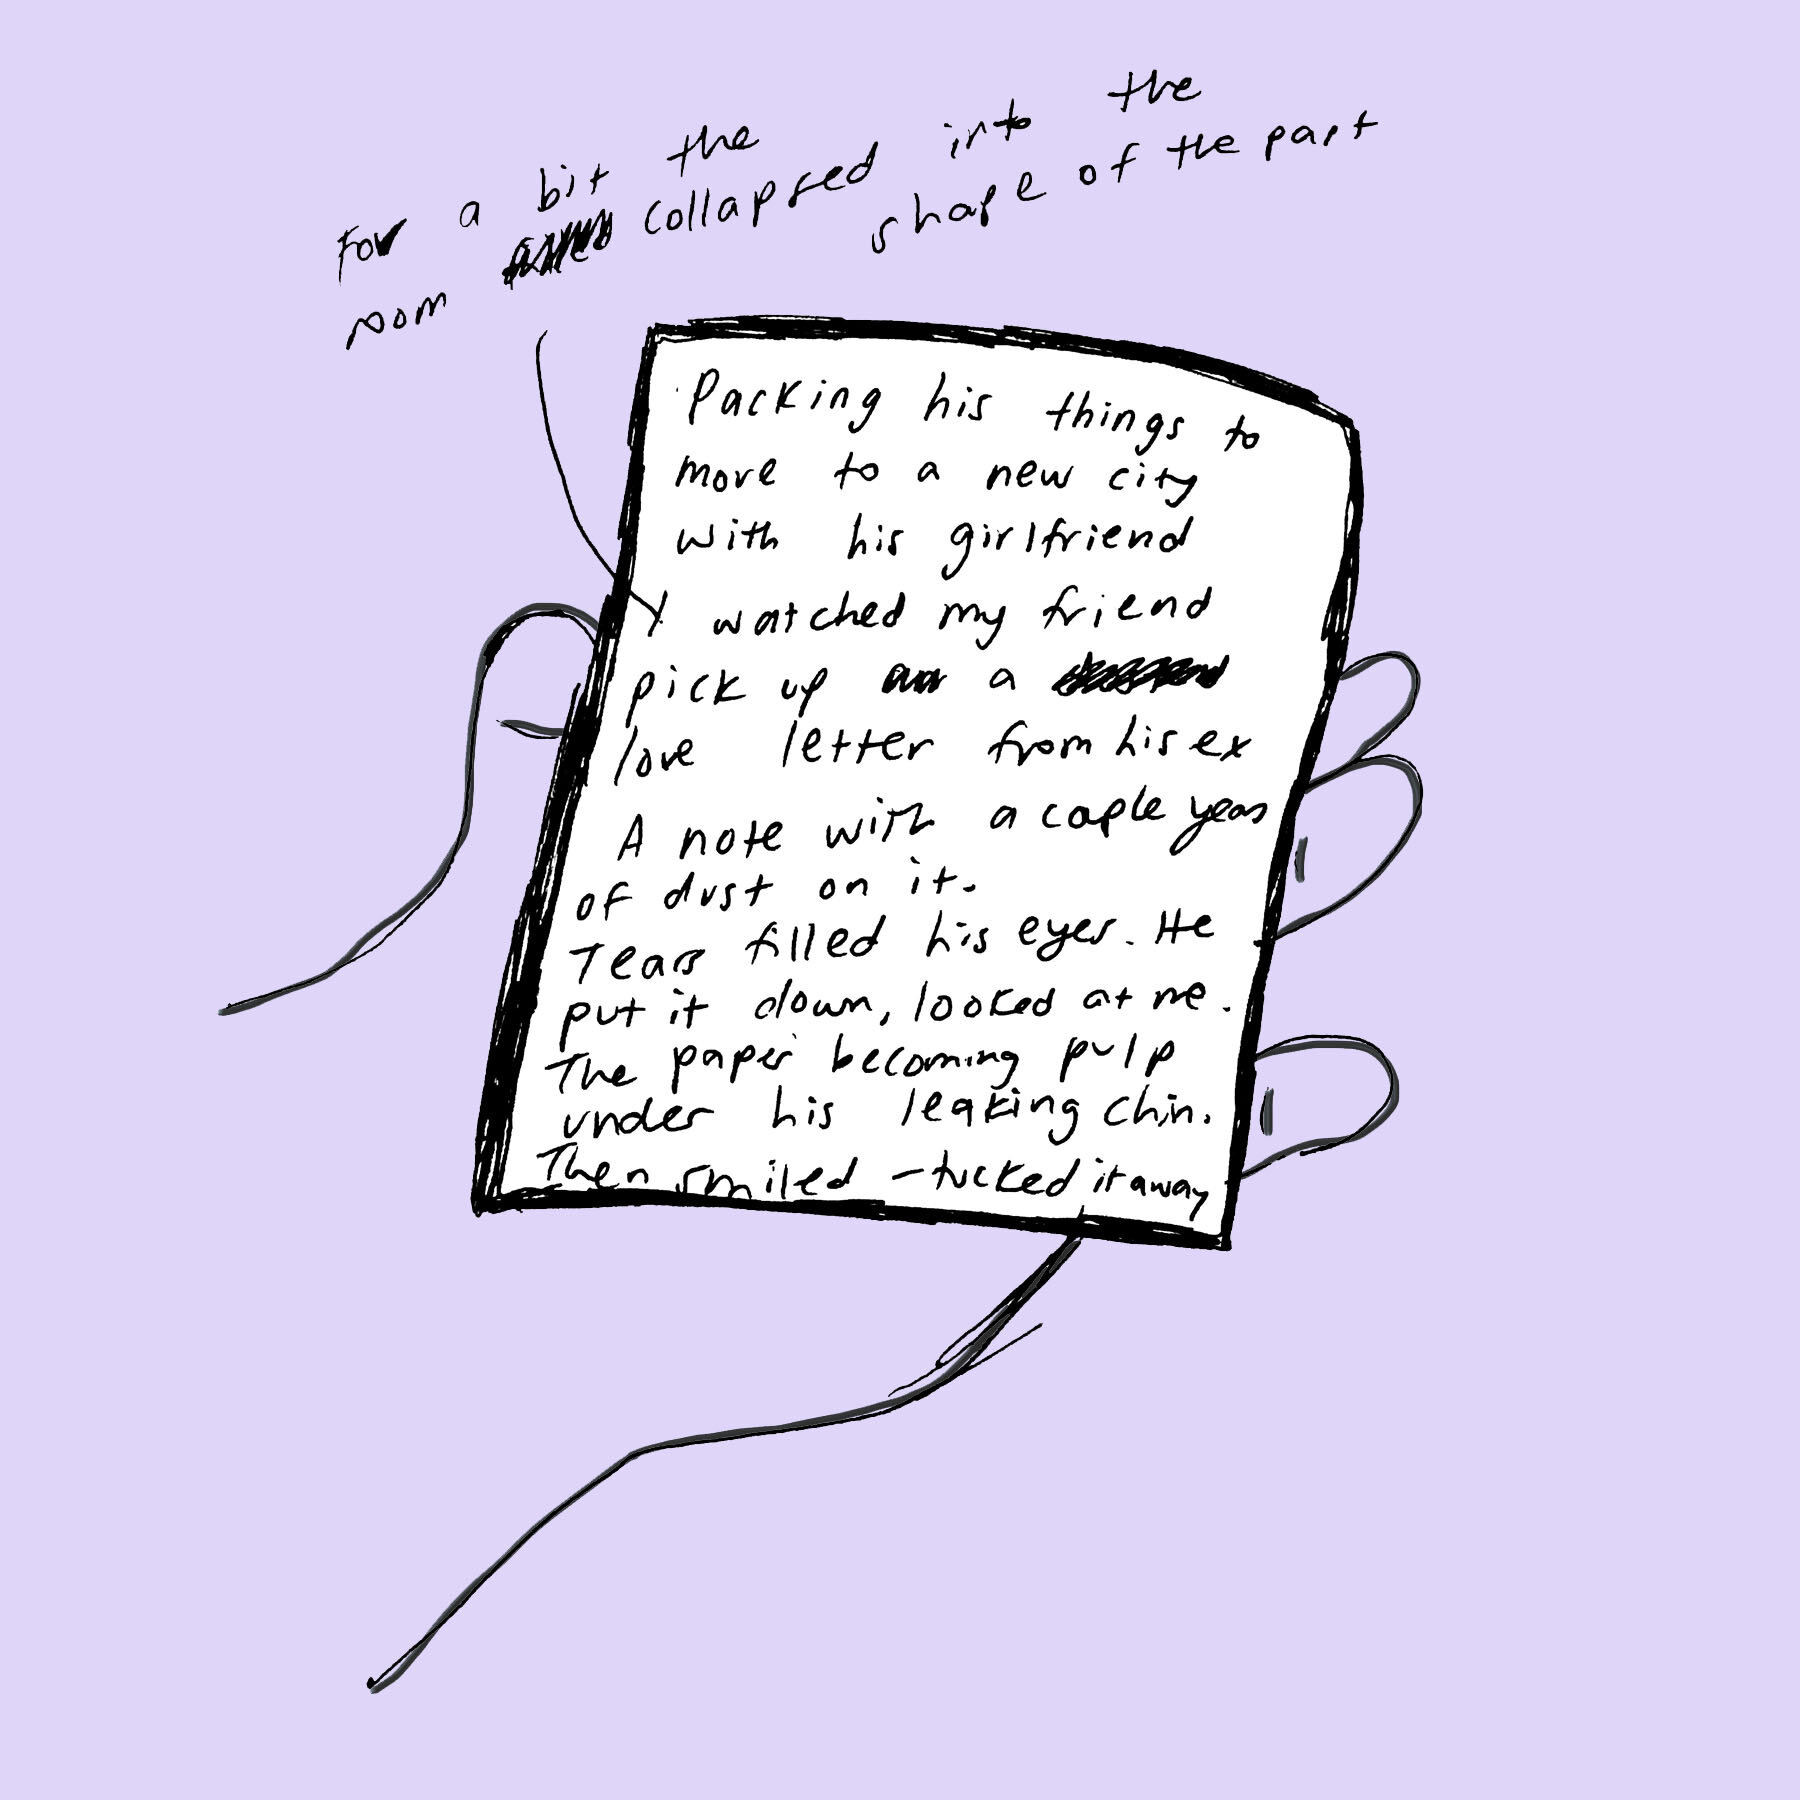 For a bit the
room collapsed into the
shape of the past
Packing his things to
move to a new city
with his girlfriend
I watched my friend
pick up a
love letter from his ex
A note with a couple years
of dust on it.
Tears filled his eyes. He
put it down, looked at me.
The paper becoming pulp
under his leaking chin.
Then smiled - tucked it away